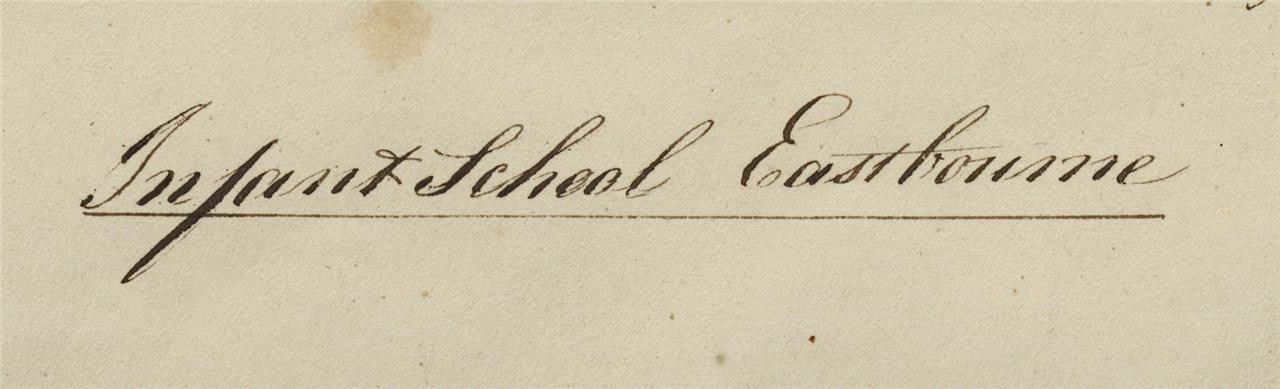 Infant School Eastbourne